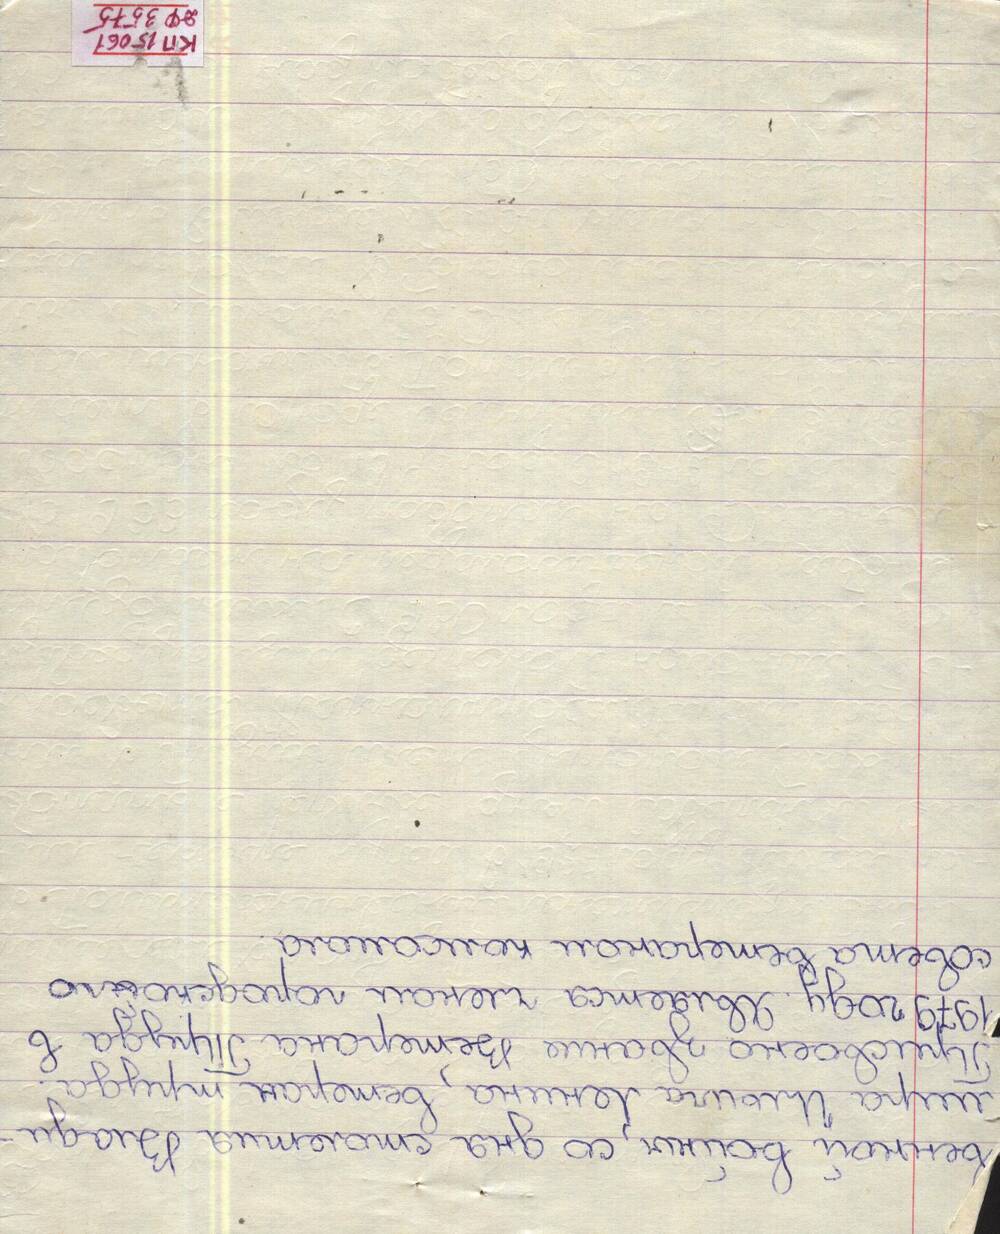 венной войны, со дня столетия Влади-
мира Ильича Ленина, ветеран труда.
Присвоено звание Ветерана Труда в
1979 году. Является членом городского
совета ветераном комсомола.
КП 15061
ДФ 3575